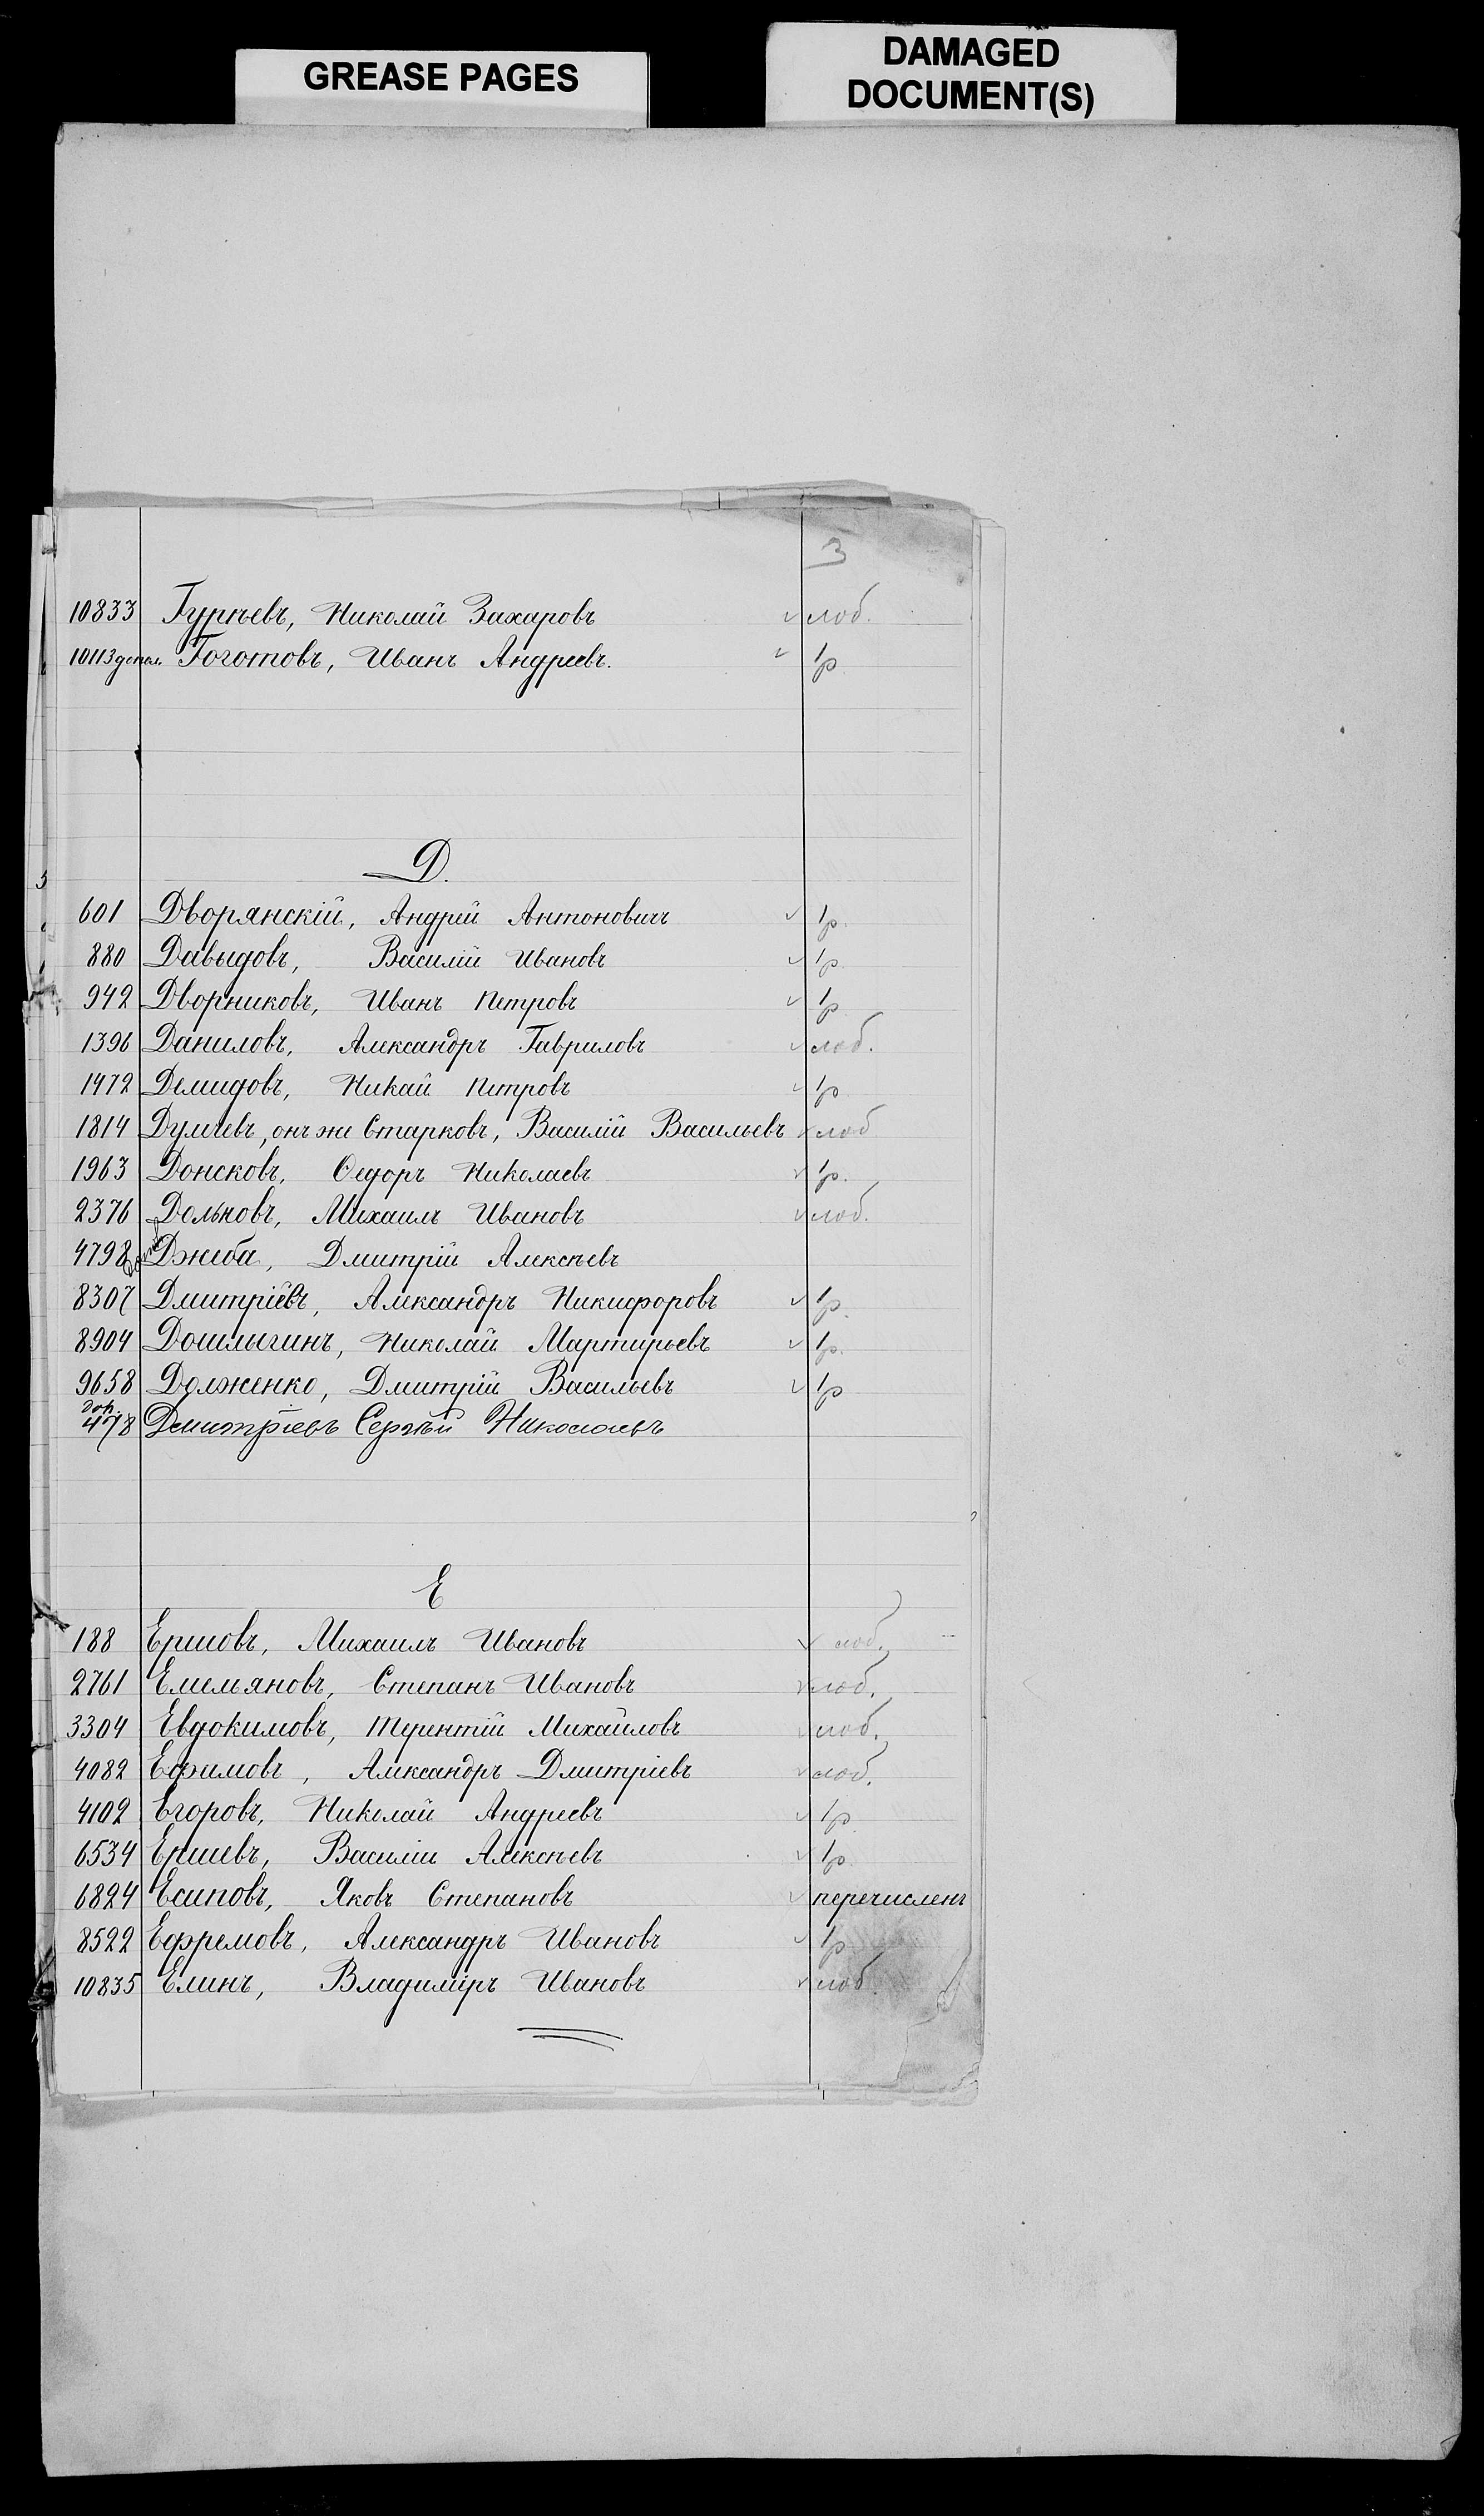 GREASE PAGES
DAMAGED
DOCUMENT(S)
3
10833 Гурьевъ, Николай Захаровъ лоб.
10113 допол. Гоготовъ, Иванъ Андреевъ. 1р
Д.
601 Дворянскій, Андрей Антоновичъ 1р.
880 Давыдовъ, Василій Ивановъ 1р.
942 Дворниковъ, Иванъ Петровъ 1р
1396 Даниловъ, Александръ Гавриловъ лоб.
1472 Демидовъ, Никай Петровъ 1р
1814 Думчевъ, онъ же Старковъ, Василій Васильевъ лоб
1963 Донсковъ, Ѳедоръ Николаевъ 1р.
2376 Дольновъ, Михаилъ Ивановъ лоб.
4798 Джеба, Дмитрій Алексѣевъ
8307 Дмитріевъ, Александръ Никифоровъ 1р.
8904 Дошлыгинъ, Николай Мартирьевъ 1р.
9658 Долженко, Дмитрій Васильевъ 1р
доп.
478 Дмитріевъ Сергѣй Николаевъ
Е
188 Ершовъ, Михаилъ Ивановъ лоб.
2761 Емемяновъ, Степанъ Ивановъ лоб.
3304 Евдокимовъ, Терентій Михайловъ лоб.
4082 Ефимовъ, Александръ Дмитріевъ лоб.
4102 Егоровъ, Николай Андреевъ 1р.
6534 Ершевъ, Василій Алексѣевъ 1р.
6824 Есиповъ, Яковъ Степановъ перечисленъ
8522 Ефремовъ, Александръ Ивановъ 1р
10835 Елинъ, Владиміръ Ивановъ лоб.